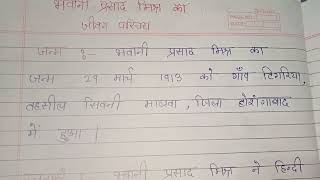 भवानी प्रसाद मिश्र का
जीवन परिचय
जन्म :- भवानी प्रसाद मिश्र का
जन्म 29 मार्च 1913 को गाँव टिगरिया,
तहसील सिवनी मालवा, जिला होशंगाबाद
में हुआ |
भवानी प्रसाद मिश्र ने हिन्दी